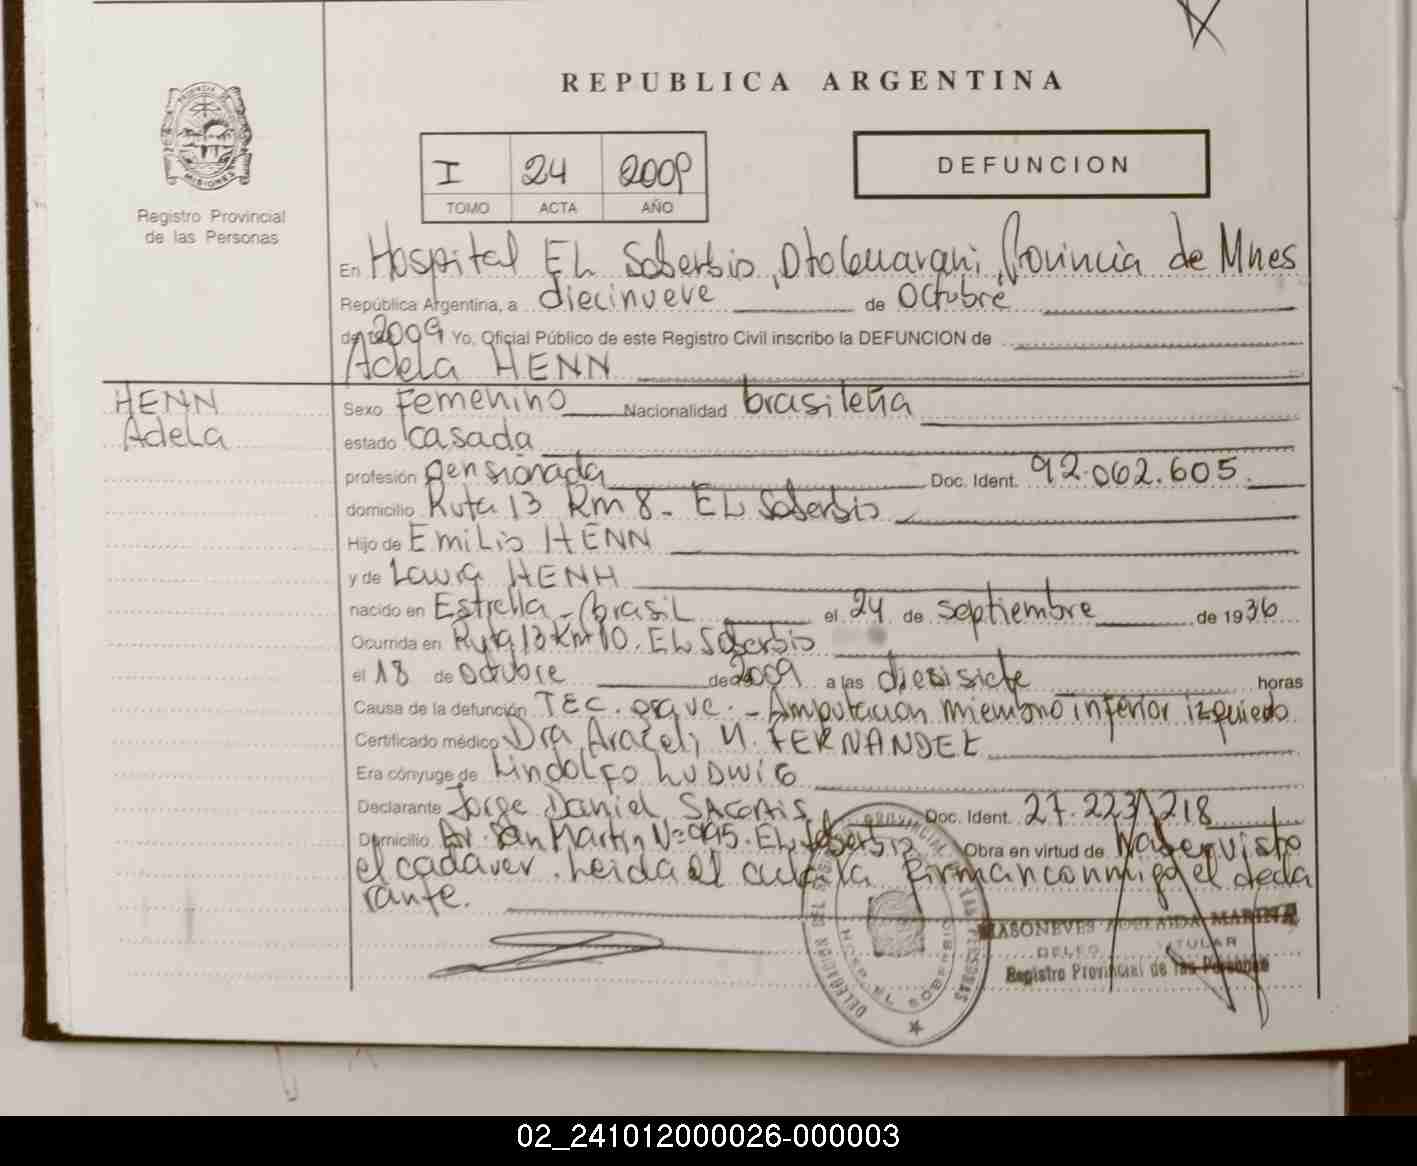 REPUBLICA ARGENTINA
PROVINCIA DE
MISIONES
Registro Provincial
de las Personas
I 24 2009
TOMO ACTA AÑO
DEFUNCION
En Hospital EL Soberbio, Dto Guarani, Provincia de Mnes
República Argentina, a diecinueve de Octubre
de 2009 Yo, Oficial Público de este Registro Civil inscribo la DEFUNCION de
Adela HENN
HENN
Adela
Sexo Femenino Nacionalidad brasileña
estado casada
profesión pensionada Doc. Ident. 92.062.605.
domicilio Ruta 13 Km 8 - EL Soberbio
Hijo de Emilio HENN
y de Laura HENH
nacido en Estrella - brasil el 24 de septiembre de 1936
Ocurrida en Ruta 13 Km 10. EL Soberbio
el 18 de octubre de 2009 a las diesisiete horas
Causa de la defunción TEC. grave. - Amputacion miembro inferior izquiedo
Certificado médico Dra, Araceli M. FERNANDEZ
Era cónyuge de Lindolfo LUDWIG
Declarante Jorge Daniel
Doc. Ident. 27.223.218
Domicilio Av. San Martin Nº 995. EL Soberbio Obra en virtud de Haber visto
el cadaver. Leida el acta la firman conmigo el decla
rante.
MASONEVES ADELAIDA MARINA
DELEG TITULAR
Registro Provincial de las Personas
02_241012000026-000003